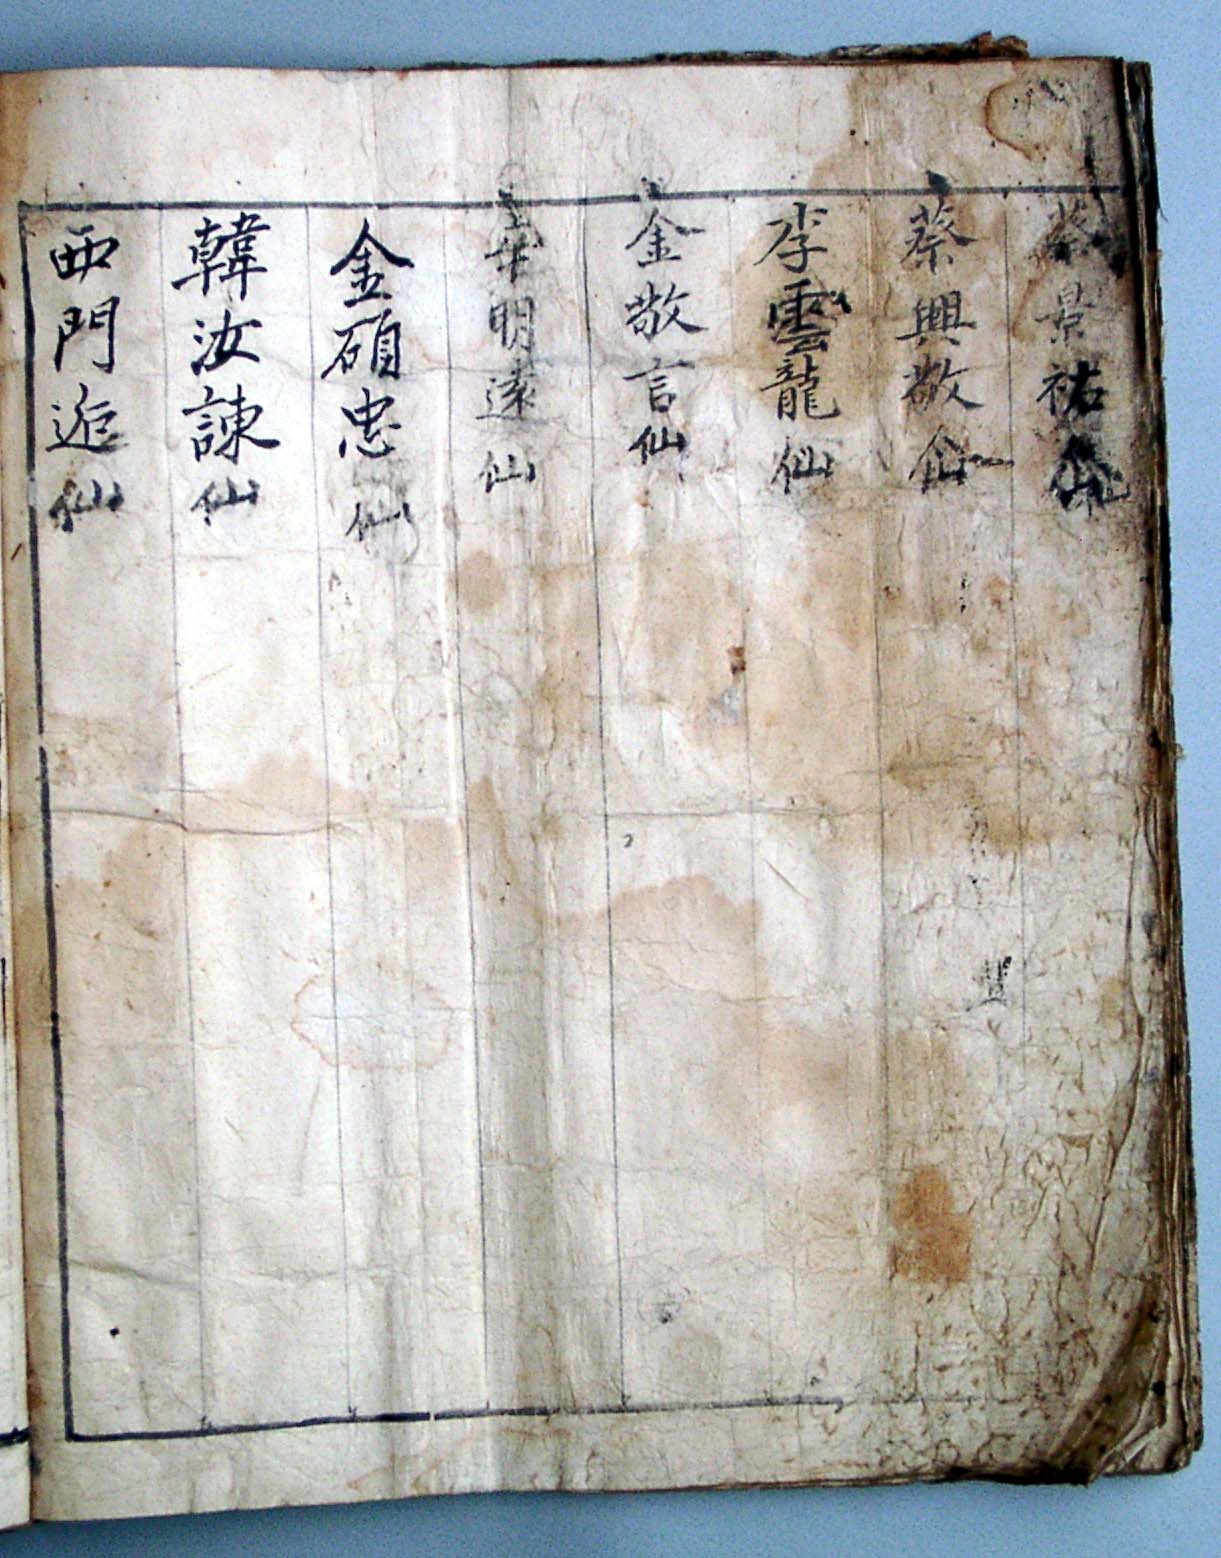 蔡景祐仙
蔡興敬仙
李雲龍仙
金敬言仙
明遠仙
金碩忠仙
韓汝諫仙
西門逅仙